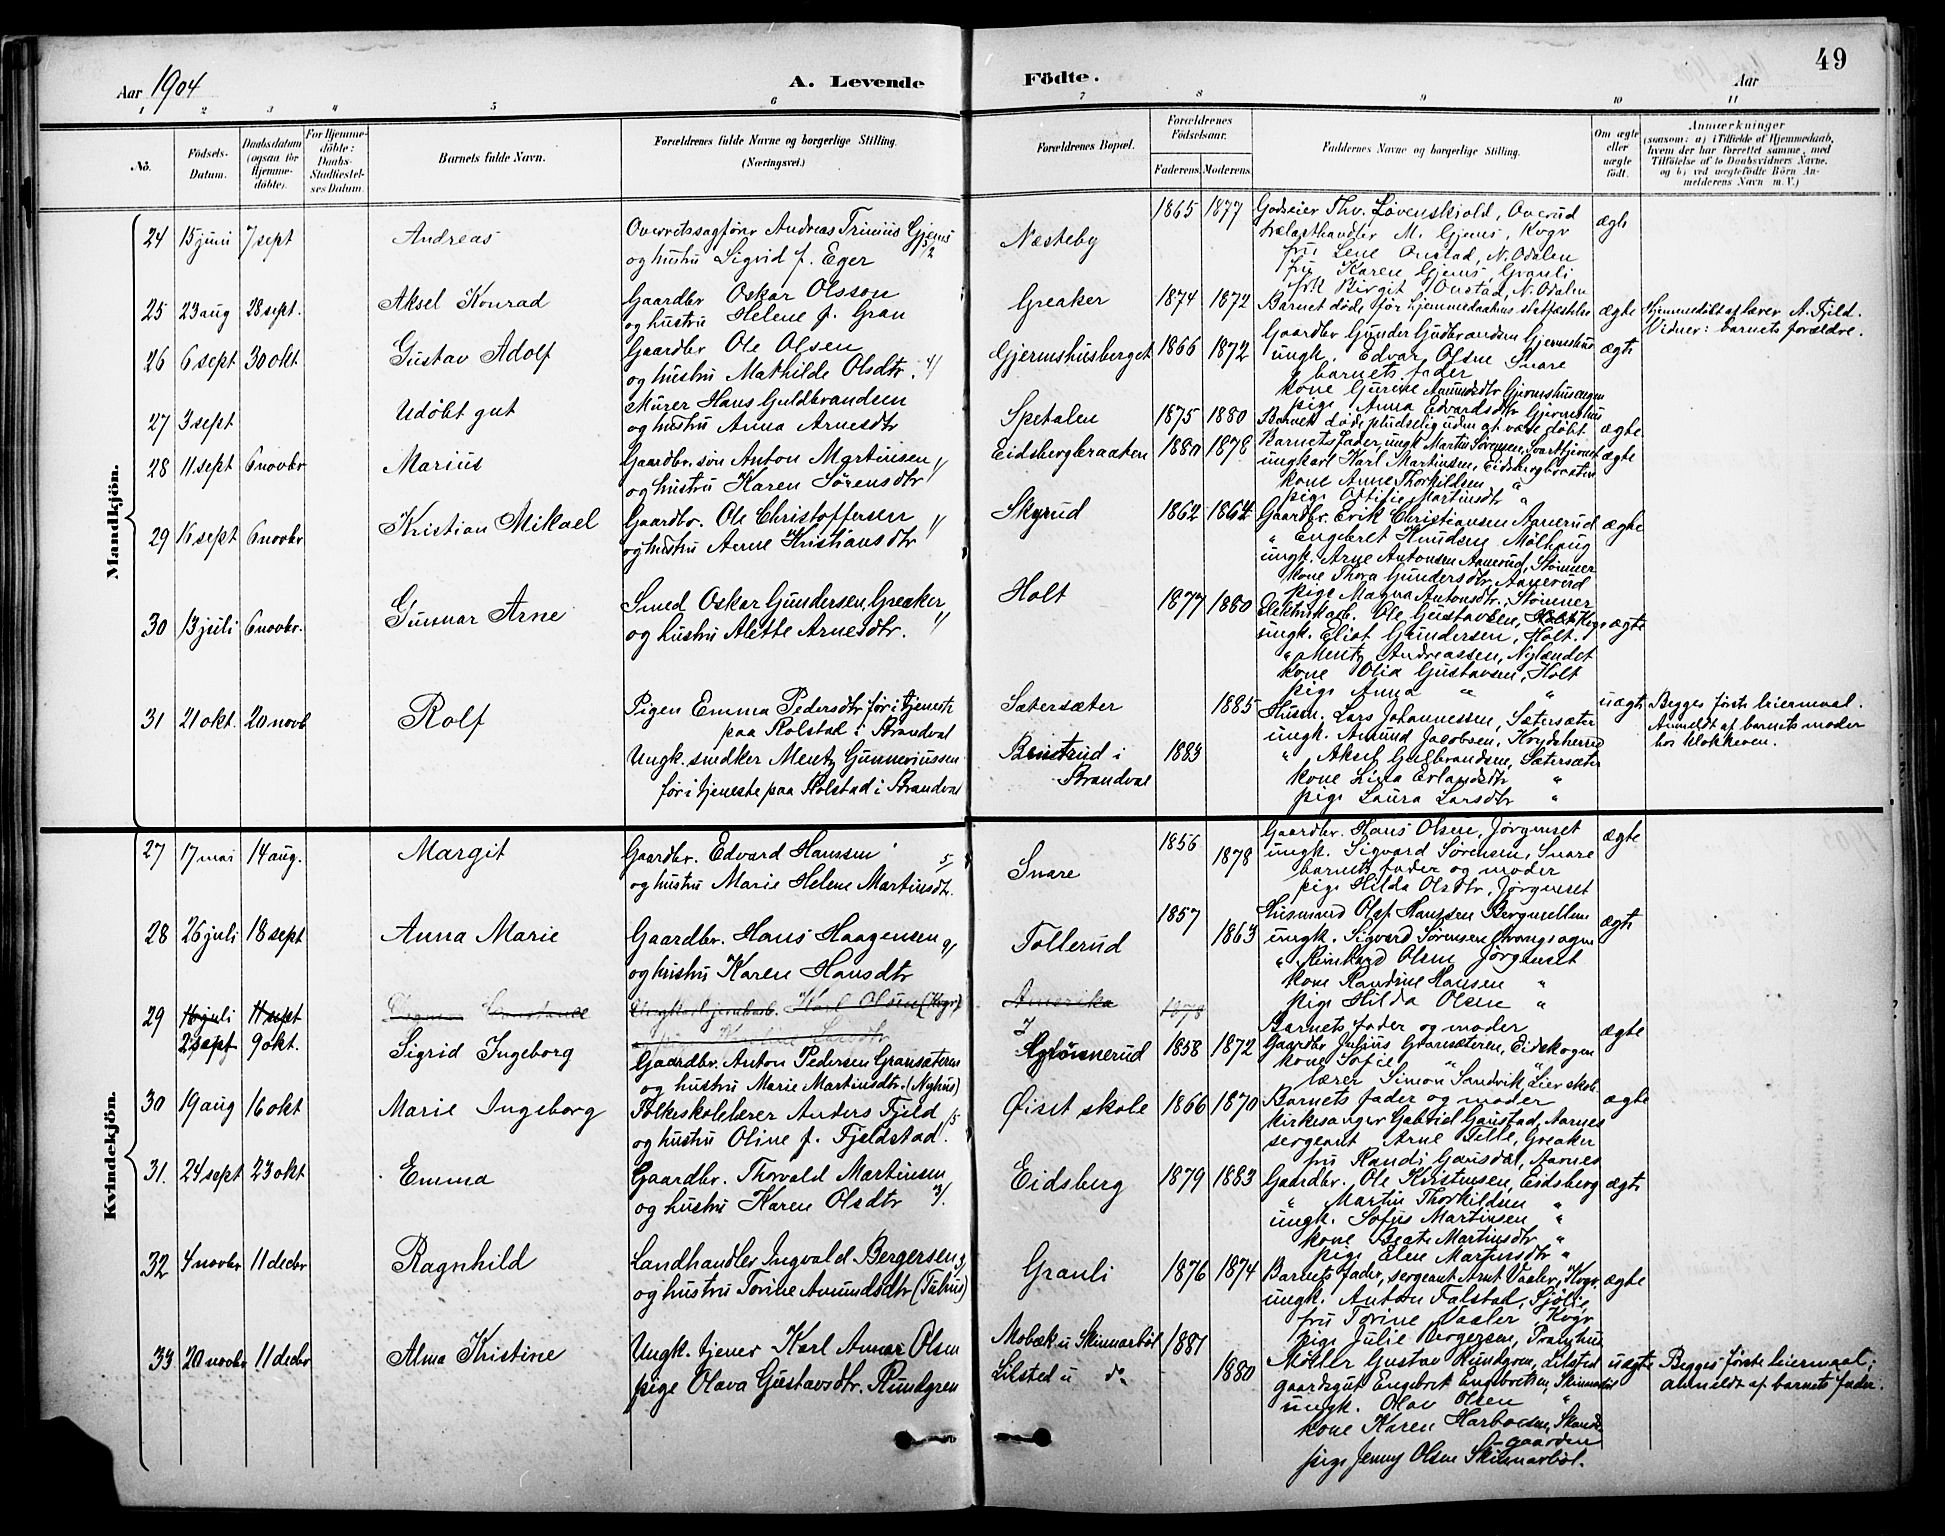 49
Aar 1904
A. Levende
Födte.
Aar
1 2 3 4 5 6 7 8 9 10 11
No.
Födsels-Datum.
Daabsdatum (ogsaa for Hjemme-döbte).
For Hjemme-döbte: Daabs-Stadfæstel-ses Datum.
Barnets fulde Navn.
Forældrenes fulde Navne og borgerlige Stilling. (Næringsvei.)
Forældrenes Bopæl.
Forældrenes Födselsaar.
Faderens Moderens
Faddernes Navne og borgerlige Stilling.
Om ægte eller uægte födt.
Anmærkninger
(saasom: a) i Tilfælde af Hjemmedaab,
hvem der har forrettet samme, med
Tilföielse af to Daabsvidners Navne,
og b) ved uægtefödte Börn An-
melderens Navn m. V.)
Mandkjön.
24 15 juni 7 sept Andreas
Overretssagfører Andreas Trinius Gjems
og hustru Sigrid f. Eger
Næsteby 1865 1877
Godseier Thv. Løvenskjold, Overud
trælasthandler M. Gjems, Kvgr
fru Lene Onstad, N. Odalen
fru Karen Gjems, Granli
frk Birgit Onstad, N. Odalen
ægte
25 23 aug 28 sept. Aksel Konrad
Gaardbr Oskar Olsson
og hustru Helene f. Gran
Greaker 1874 1872
Barnet døde før hjemmedaabens stadfæstelse
ægte
Hjemmedöbt af lærer A. Fjeld.
Vidner: barnets forældre.
26 6 sept 30 okt Gustav Adolf
Gaardbr Ole Olsen
og hustru Mathilde Olsdtr. 4/
Gjermshusberget 1866 1872
Gaardbr Gunder Gudbrandsen Gjermshus
ungk. Edvar Olsen Snare
barnets fader
kone Gurine Amundsdtr Gjermshusengen
pige Anna Edvardsdtr Gjermshus
ægte
27 3 sept Udöbt gut
Murer Hans Guldbrandsen
og hustru Anna Arnesdtr
Spetalen 1875 1880
Barnet døde pludselig uden at være döbt.
ægte
28 11 sept 6 novbr Marius
Gaardbr. søn Anton Martinsen
og hustru Karen Sørensdtr 1/
Eidsbergbraaten 1880 1878
Barnets fader, ungk Martin Sørensen, Svarttjernet
ungkarl Karl Martinsen, Eidsbergbraaten
kone Anne Thorkildsen
pige Otilie Martinsdtr "
ægte
29 16 sept 6 novbr Kristian Mikael
Gaardbr. Ole Christoffersen
og hustru Anne Kristiansdtr 1/
Skyrud 1862 1864
Gaardbr. Erik Christiansen Aanerud
" Engebret Knudsen Mølhaug
ungk. Arne Antonsen Aanerud, Stømner
kone Thora Gundersdtr, Aanerud
pige Magna Antonsdtr, Stømner
ægte
30 13 juli 6 novbr. Gunnar Arne
Smed Oskar Gundersen, Greaker
og hustru Alette Arnesdtr. 1/
Holt 1877 1880
Elektrikarb. Ole Gustavsen, Kvgr
ungk. Eliot Gundersen, Holt.
" Mentz Andreassen, Nylændet
kone Olia Gustavsen, Holt
pige Anna " "
ægte
31 21 okt. 20 novb Rolf
Pigen Emma Pedersdtr før i tjeneste
paa Rolstad i Brandval
Ungk. snedker Mentz Gunneriussen
før i tjeneste paa Rolstad i Brandval
Sætersæter 1885
Benterud i
Brandval 1883
Husm. Lars Johannessen, Sætersæter
ungk. Amund Jacobsen, Krydsherred
" Aksel Gulbrandsen, Sætersæter
kone Lina Erlandsdtr "
pige Laura Larsdtr "
uægte
Begges første leiermaal.
Anmeldt af barnets moder
hos klokkeren.
Kvindekjön.
27 17 mai 14 aug. Margit
Gaardbr. Edvard Hanssen
og hustru Marie Helene Martinsdtr. 5/
Snare 1856 1878
Gaardbr. Hans Olsen, Jørgenset
ungk. Sigvard Sørensen, Snare
barnets fader og moder
pige Hilda Olsdtr, Jørgenset
ægte
28 26 juli 18 sept Anna Marie
Gaardbr. Hans Haagensen 9/
og hustru Karen Hansdtr
Tollerud 1857 1863
Husmand Olef Hanssen Bergmellem
ungk. Sigvard Sørensen
" Reinhard Olsen Jørgenset
kone Randine Hansen "
pige Hilda Olsen "
ægte
29 16 juli 11 sept
Karl Olsen (Kvgr)
Amerika 1878
23 sept 9 okt. Sigrid Ingeborg
Gaardbr. Anton Pedersen Gransæteren
og hustru Marie Martinsdtr. (Nyhus)
1858 1872
Barnets fader og moder
Gaardbr Julius Gransæteren, Eidskogen
kone Sofie " "
lærer Simon Sandvik, Lier skole
ægte
30 19 aug 16 okt Marie Ingeborg
Folkeskolelærer Anders Fjeld
og hustru Oline f. Fjeldstad. /5
Øiset skole 1866 1870
Barnets fader og moder
kirkesanger Gabriel Gaustad, Aarnes
sergeant Arne Tille, Greaker
fru Randi Gausdal, Aarnes
ægte
31. 24 sept 23 okt Emma
Gaardbr. Thorvald Martinsen
og hustru Karen Olsdtr 3/.
Eidsberg 1879 1883
Gaardbr. Ole Kristensen, Eidsberg
" Martin Thorkildsen "
ungk. Sofus Martinsen "
kone Beate Martinsdtr "
pige Elen Martinsdtr "
ægte
32 4 novbr 11 decbr Ragnhild
Landhandler Ingvald Bergersen
og hustru Torine Amundsdtr
Granli 1876 1874
Barnets fader, sergeant Arnt Vaaler, Kvgr
ungk. Anton Falstad, Sjølie
fru Torine Vaaler, Kvgr
pige Julie Bergersen, Pramhus
ægte
33 20 novbr 11 decbr Alma Kristine
Ungk. tjener Karl Annar Olsen
pige Olava Gustavsdtr. Rundgren
Mobæk u Skinnarböl 1881
Lilsted u do 1880
Møller Gustav Rundgren, Lilsted
gaardsgut Engebret Engebretsen, Skinnarböl
ungk. Olav Olsen "
kone Karen Harboesen, Skands-
gaarden
pige Jenny Olsen Skinnarböl.
uægte
Begges første leiermaal;
anmeldt af barnets fader.